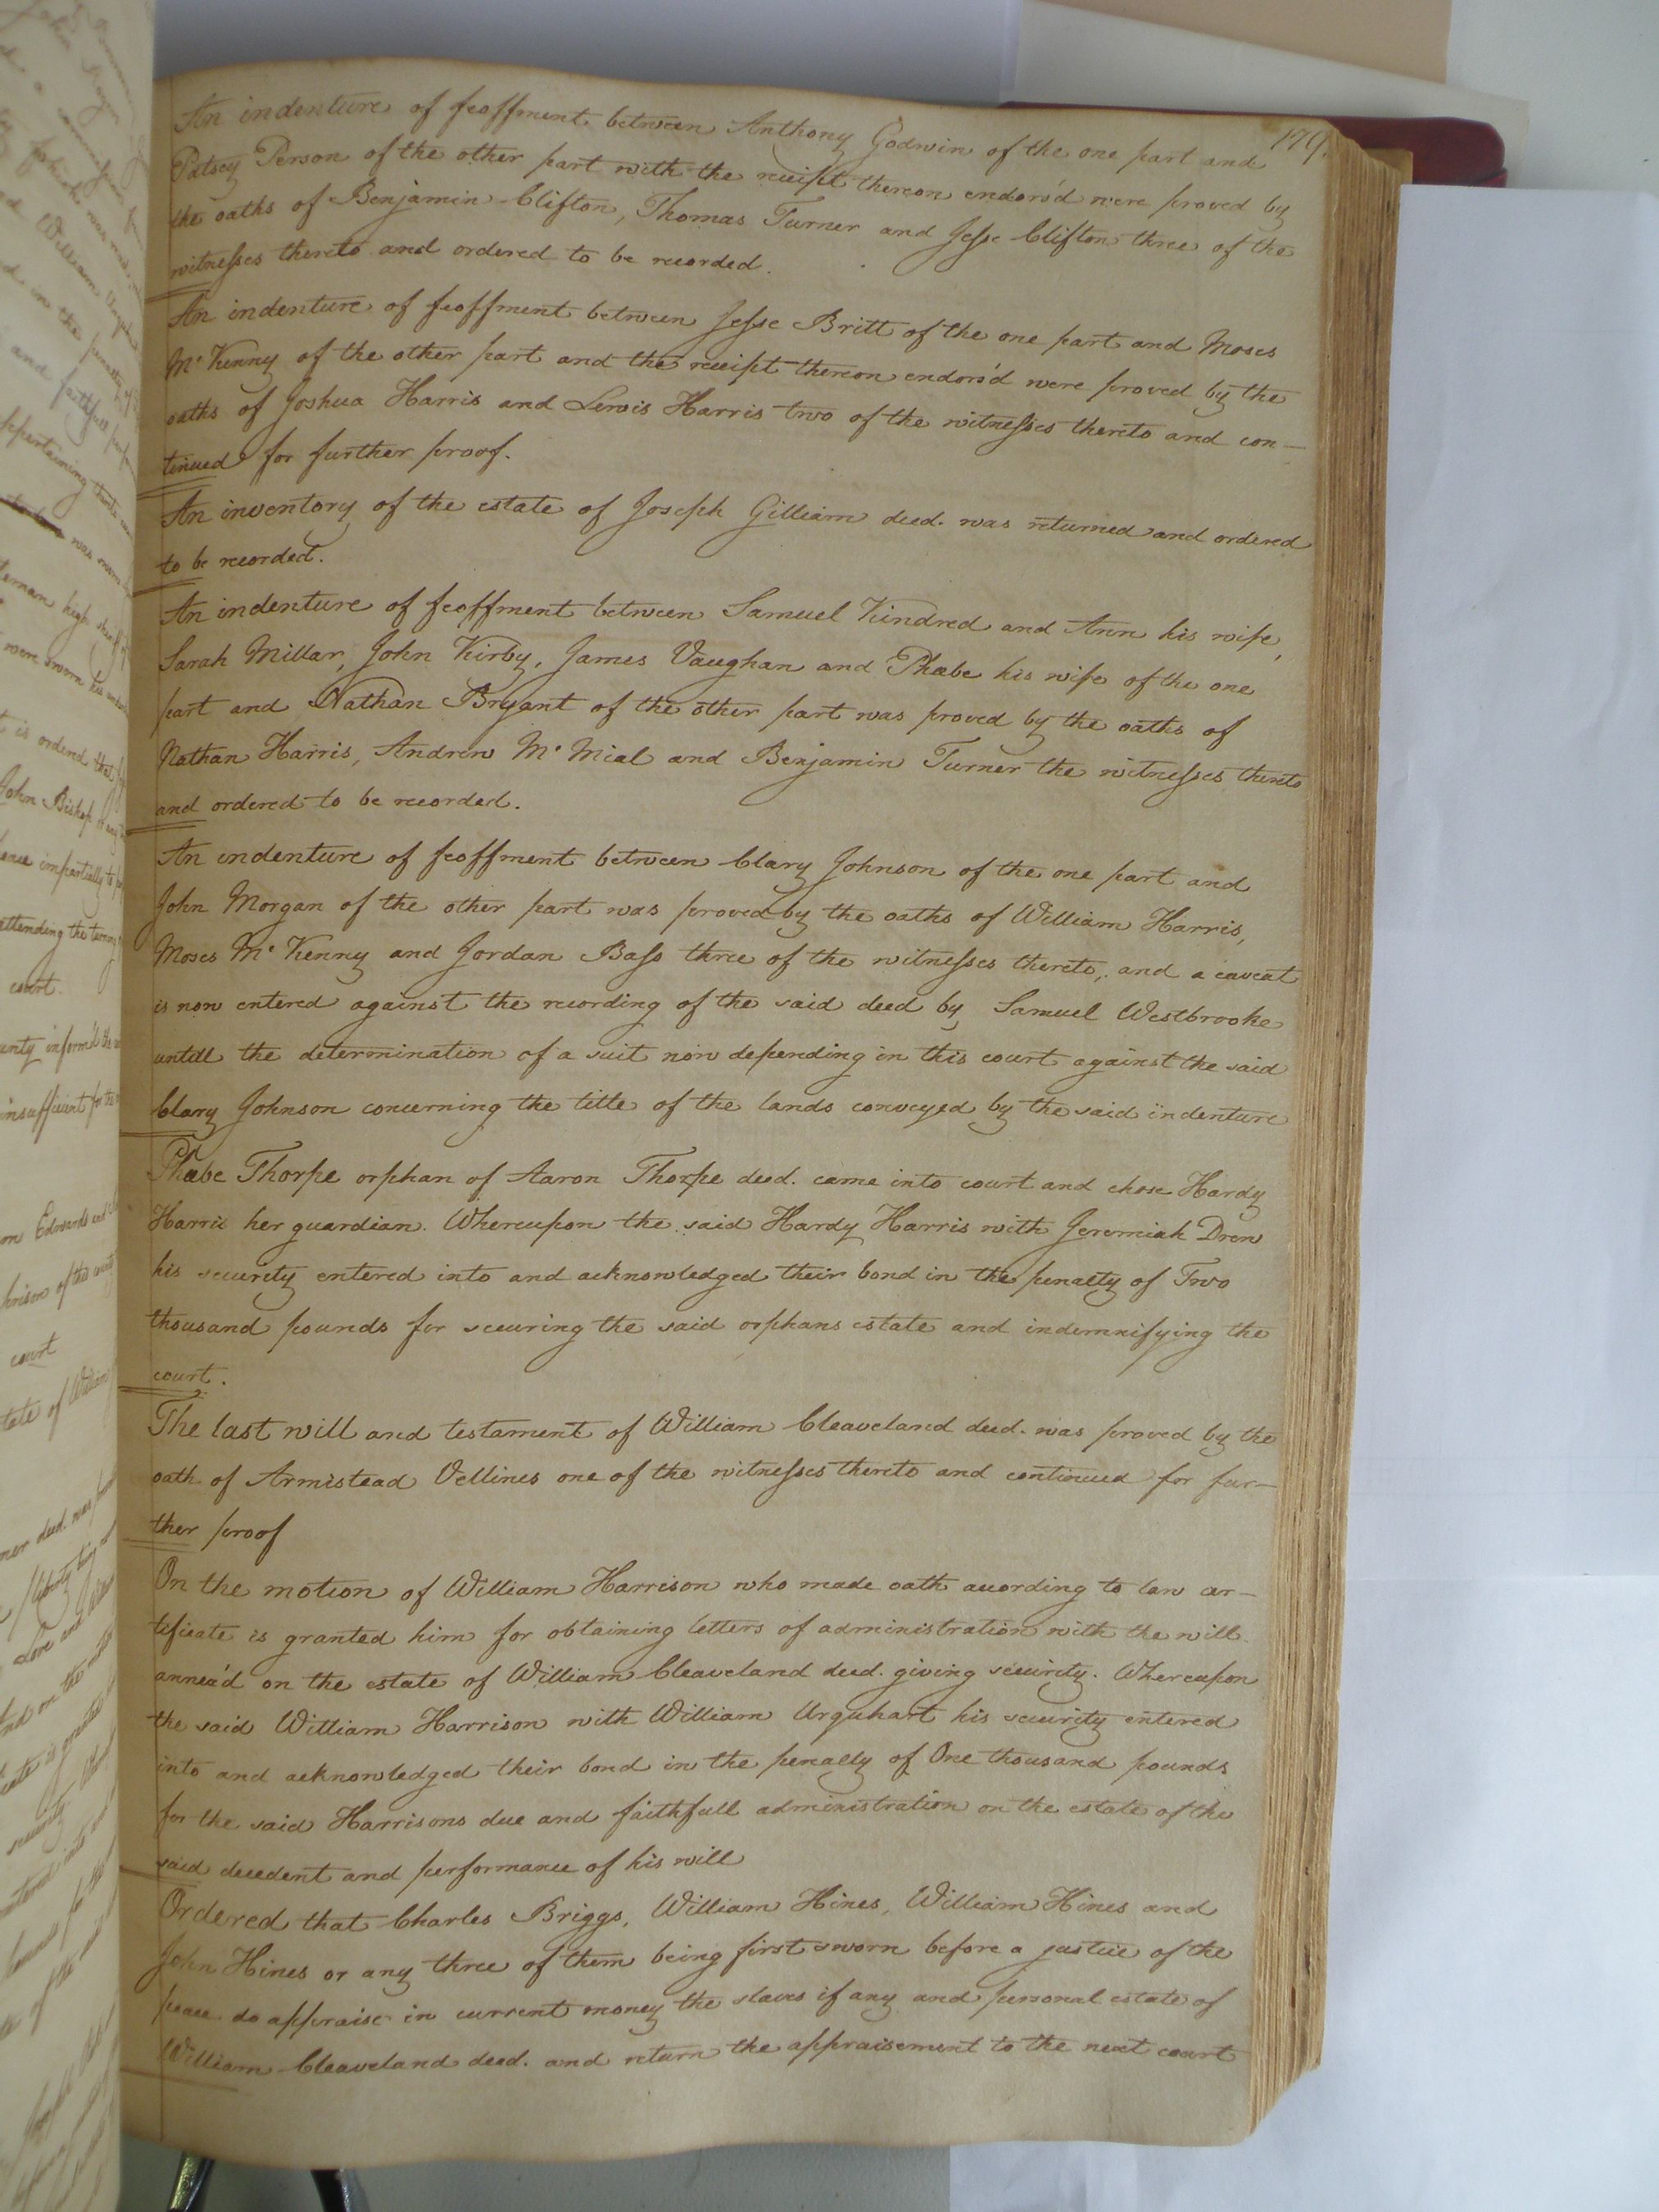 179.
An indenture of feoffment between Anthony Godwin of the one part and
Patsey Person of the other part with the receipt thereon endors'd were proved by
the oaths of Benjamin Clifton, Thomas Turner and Jesse Clifton three of the
witnesses thereto and ordered to be recorded.
An indenture of feoffment between Jesse Britt of the one part and Moses
Mc Kenny of the other part and the receipt thereon endors'd were proved by the
oaths of Joshua Harris and Lewis Harris two of the witnesses thereto and con-
tinued for further proof.
An inventory of the estate of Joseph Gilliam decd. was returned and ordered
to be recorded.
An indenture of feoffment between Samuel Kindred and Ann his wife,
Sarah Millar, John Kirby, James Vaughan and Phœbe his wife of the one
part and Nathan Bryant of the other part was proved by the oaths of
Nathan Harris, Andrew Mc Mial and Benjamin Turner the witnesses thereto
and ordered to be recorded.
An indenture of feoffment between Clary Johnson of the one part and
John Morgan of the other part was proved by the oaths of William Harris,
Moses Mc Kenny and Jordan Bass three of the witnesses thereto, and a caveat
is now entered against the recording of the said deed by Samuel Westbrooke
untill the determination of a suit now depending in this court against the said
Clary Johnson concerning the title of the lands conveyed by the said indenture
Phœbe Thorpe orphan of Aaron Thorpe decd. came into court and chose Hardy
Harris her guardian. Whereupon the said Hardy Harris with Jeremiah Drew
his security entered into and acknowledged their bond in the penalty of Two
thousand pounds for securing the said orphans estate and indemnifying the
court.
The last will and testament of William Cleaveland decd. was proved by the
oath of Armistead Vellines one of the witnesses thereto and continued for fur-
ther proof
On the motion of William Harrison who made oath according to law cer-
tificate is granted him for obtaining letters of administration with the will
annex'd on the estate of William Cleaveland decd. giving security. Whereupon
the said William Harrison with William Urquhart his security entered
into and acknowledged their bond in the penalty of One thousand pounds
for the said Harrisons due and faithfull administration on the estate of the
said decedent and performance of his will
Ordered that Charles Briggs, William Hines, William Hines and
John Hines or any three of them being first sworn before a justice of the
peace do appraise in current money the slaves if any and personal estate of
William Cleaveland decd. and return the appraisement to the next court